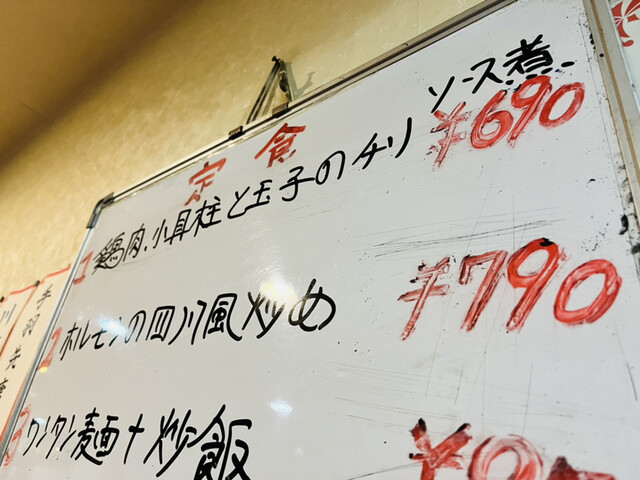 定食
1 鶏肉、小貝柱と玉子のチリソース煮 ¥690
2 ホルモンの四川風炒め ¥790
3 ワンタン麺+炒飯